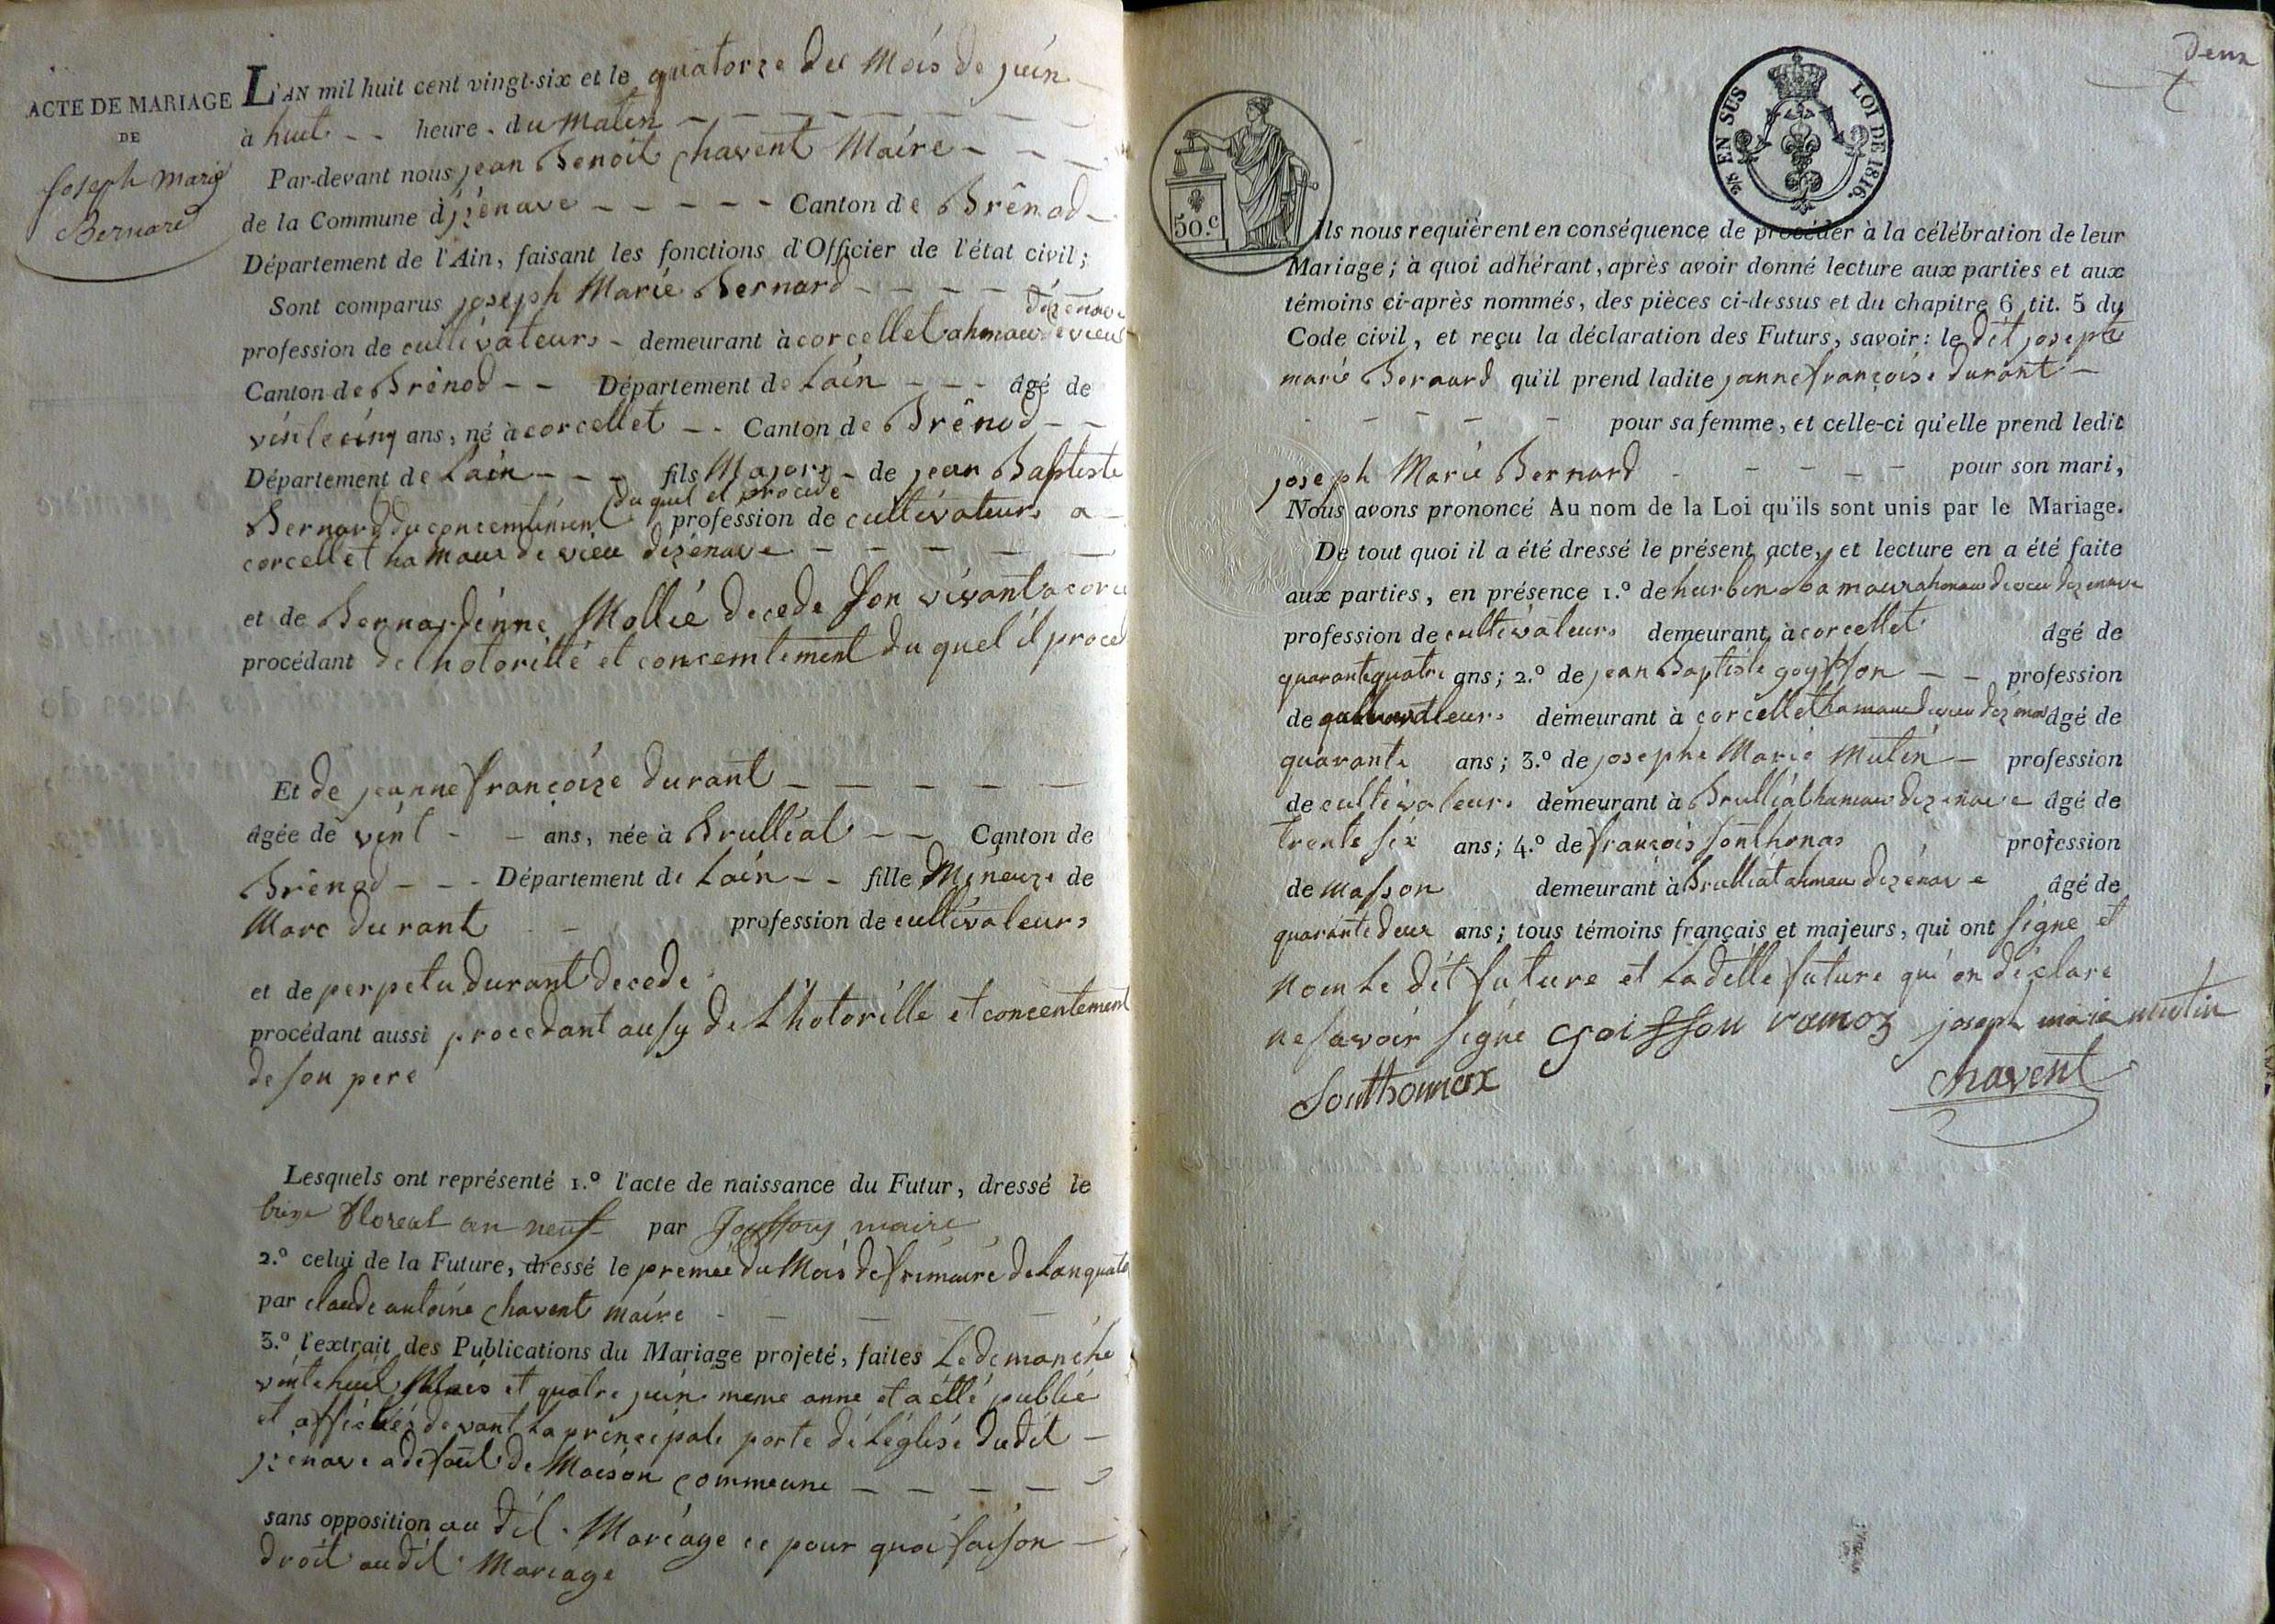 ACTE DE MARIAGE
DE
Joseph marie
Bernard
L'AN mil huit cent vingt-six et le quatorze du Mois de juin
à huit heure du Matin
Par-devant nous jean Benoit Chavent Maire
de la Commune d'izenave Canton de Brênod
Département de l'Ain, faisant les fonctions d'Officier de l'état civil;
Sont comparus joseph Marie Bernard
dizenave
profession de cultivateurs demeurant à corcellet ahmau de vieu
Canton de Brênod Département de Lain âgé de
vinlecinq ans, né à corcellet Canton de Brênod
Département de Lain fils Majors de jean Baptiste
du quel et procede
Bernard du concentiment profession de cultivateurs a
corcellet hamaux de vieu dizenave
et de Bernardinne Mollié decede son vivant a corce
procédant de lhotoritté et concemtement du quel il proced
Et de jeanne françoize durant
âgée de vint ans, née à Brulliat Canton de
Brênod Département de Lain fille Mineuze de
Marc durant profession de cultivateurs
et de perpetu durant decede
procédant aussi procedant ausy de Lhotorillé et concentement
de son pere
Lesquels ont représenté 1.º l'acte de naissance du Futur, dressé le
treze floreal an neuf par maire
2.º celui de la Future, dressé le premee du Mois de frimaire de Lan quato
par claude antoine Chavent maire
3.º l'extrait des Publications du Mariage projeté, faites Le dimanche
vintehuit Mais et quatre juin meme anne et a etté publié
et affichéz devant La principale porte de Léglise dudit
izenave adefaut de Maison commeune
sans opposition au dit Mariage ce pour quoi faison
droit audit Mariage
deux
50.C
2/5 EN SUS LOI DE 1816.
Ils nous requièrent en conséquence de procéder à la célébration de leur
Mariage; à quoi adhérant, après avoir donné lecture aux parties et aux
témoins ci-après nommés, des pièces ci-dessus et du chapitre 6, tit. 5 du
Code civil, et reçu la déclaration des Futurs, savoir: le dit joseph
marie Bernard qu'il prend ladite janne françoise durant
pour sa femme, et celle-ci qu'elle prend ledit
joseph Marie Bernard pour son mari,
Nous avons prononcé Au nom de la Loi qu'ils sont unis par le Mariage.
De tout quoi il a été dressé le présent acte, et lecture en a été faite
aux parties, en présence 1.º de hurbin ahmau de vieu dizenave
profession de cultivateurs demeurant à corcellet âgé de
quarantequatre ans; 2.º de jean Baptiste goysson profession
de demeurant à corcellet hamau de vieu dizenave âgé de
quarante ans; 3.º de josephe Marie Mutin profession
de cultivateurs demeurant à Brulliat hamau dizenave âgé de
trente six ans; 4.º de françois sonthonas profession
de masson demeurant à Brulliat ahmau dizénave âgé de
quarante deux ans; tous témoins français et majeurs, qui ont signe et
nom Le dit future et Laditte future qui on déclare
ne savoir signé goisson ramoz joseph marie mutin
Sonthonnax chavent